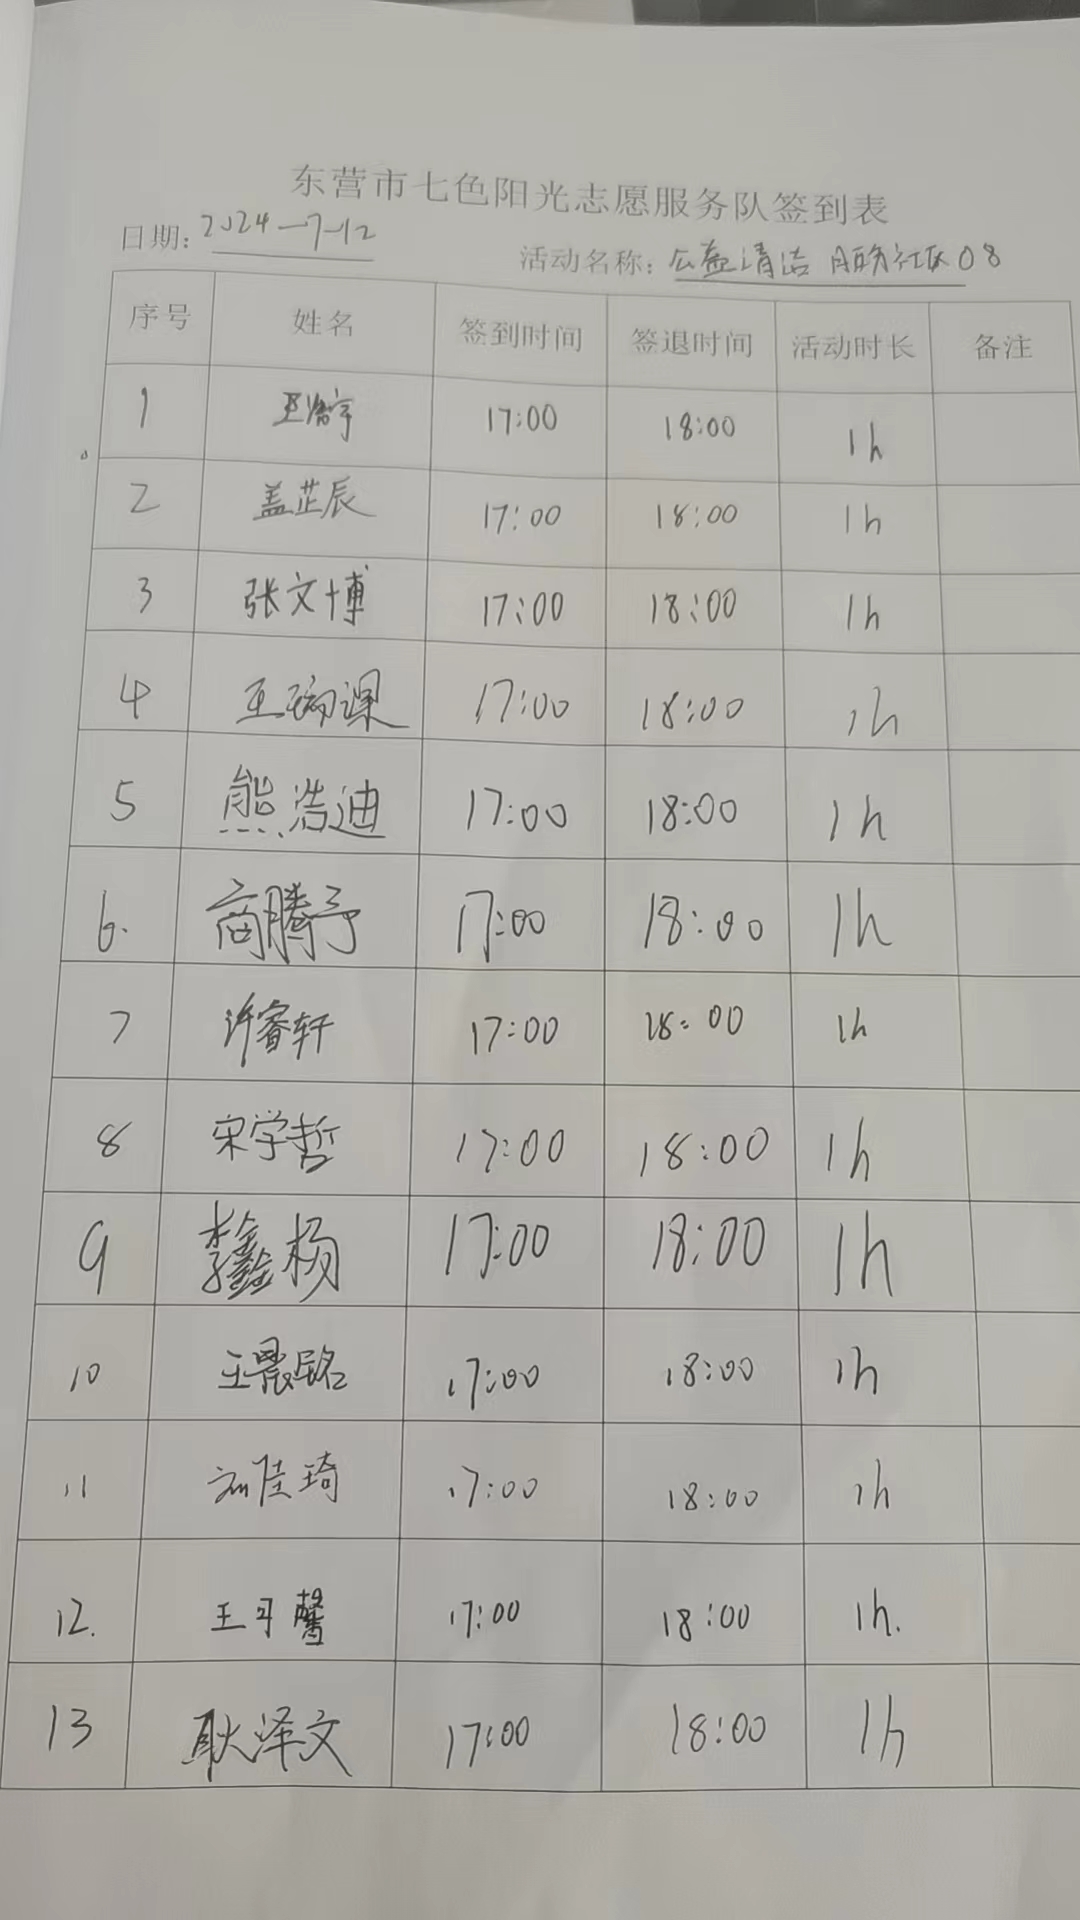 东营市七色阳光志愿服务队签到表
日期: 2024-7-12
活动名称: 公益清洁 服务社区08
序号 姓名 签到时间 签退时间 活动时长 备注
1 王浩宇 17:00 18:00 1h
2 盖芷辰 17:00 18:00 1h
3 张文博 17:00 18:00 1h
4 王瑞课 17:00 18:00 1h
5 熊浩迪 17:00 18:00 1h
6. 商腾予 17:00 18:00 1h
7 许睿轩 17:00 18:00 1h
8 宋学哲 17:00 18:00 1h
9 李鑫杨 17:00 18:00 1h
10 王晨铭 17:00 18:00 1h
11 刘佳琦 17:00 18:00 1h
12. 王可馨 17:00 18:00 1h.
13 耿泽文 17:00 18:00 1h